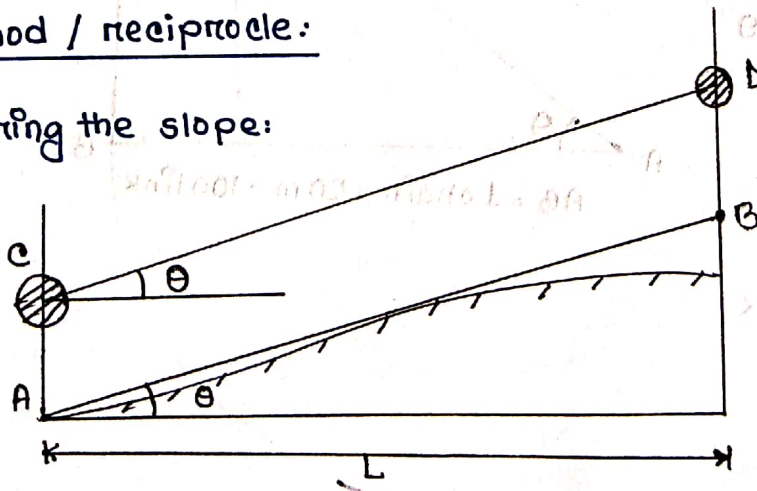 hod / reciprocle:
ring the slope:
D
C
θ
B
A
θ
L